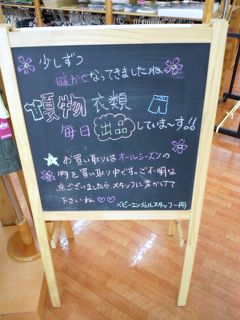 少しずつ
暖かくなってきましたね
夏物 衣類
毎日 出品 していま〜す!!
お買い取りはオールシーズンの
物を買い取り中です。ご不明な
点ございましたらスタッフに声かけて
下さいね♡♡
スタッフ一同